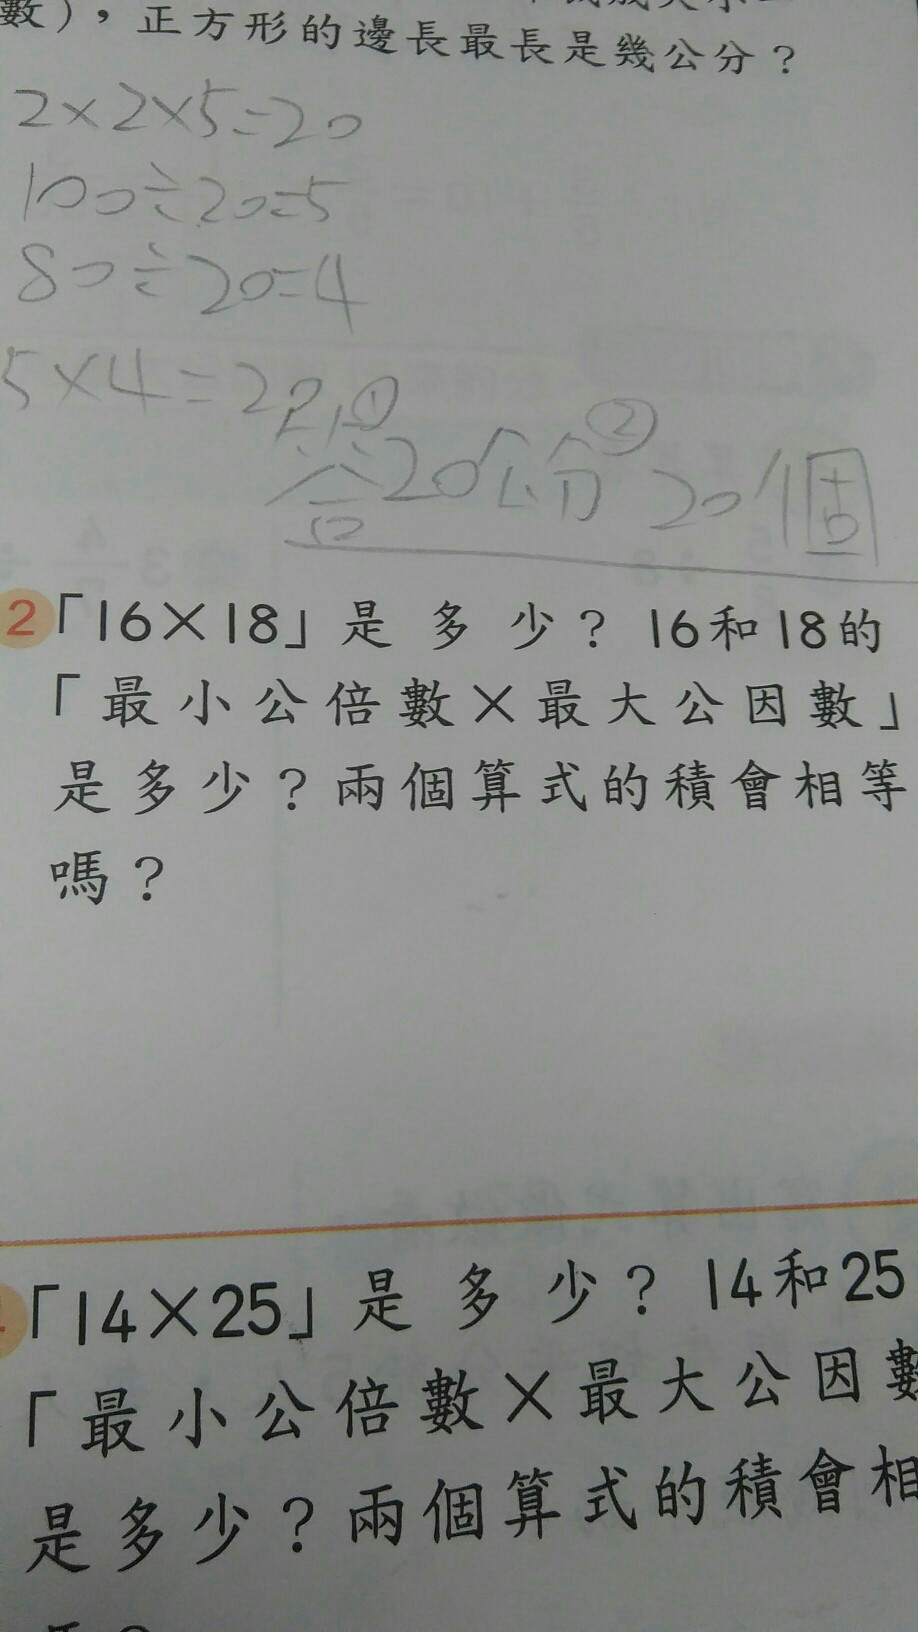 數），正方形的邊長最長是幾公分？
2×2×5=20
100÷20=5
80÷20=4
5×4=20
答①20公分②20個
2「16×18」是多少？16和18的
「最小公倍數×最大公因數」
是多少？兩個算式的積會相等
嗎？
「14×25」是多少？14和25
「最小公倍數×最大公因數
是多少？兩個算式的積會相